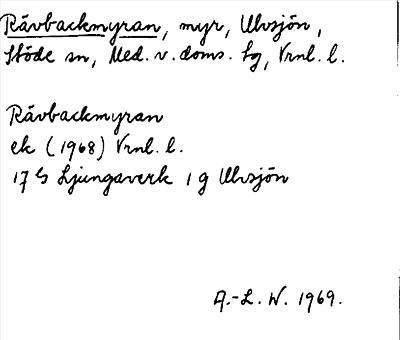 Rävbackmyran, myr, Ulvsjön,
Stöde sn, Med. v. doms. lg, Vrnl. l.
Rävbackmyran
ek (1968) Vrnl. l.
17 G Ljungaverk 1 g Ulvsjön
A.-L. W. 1969.